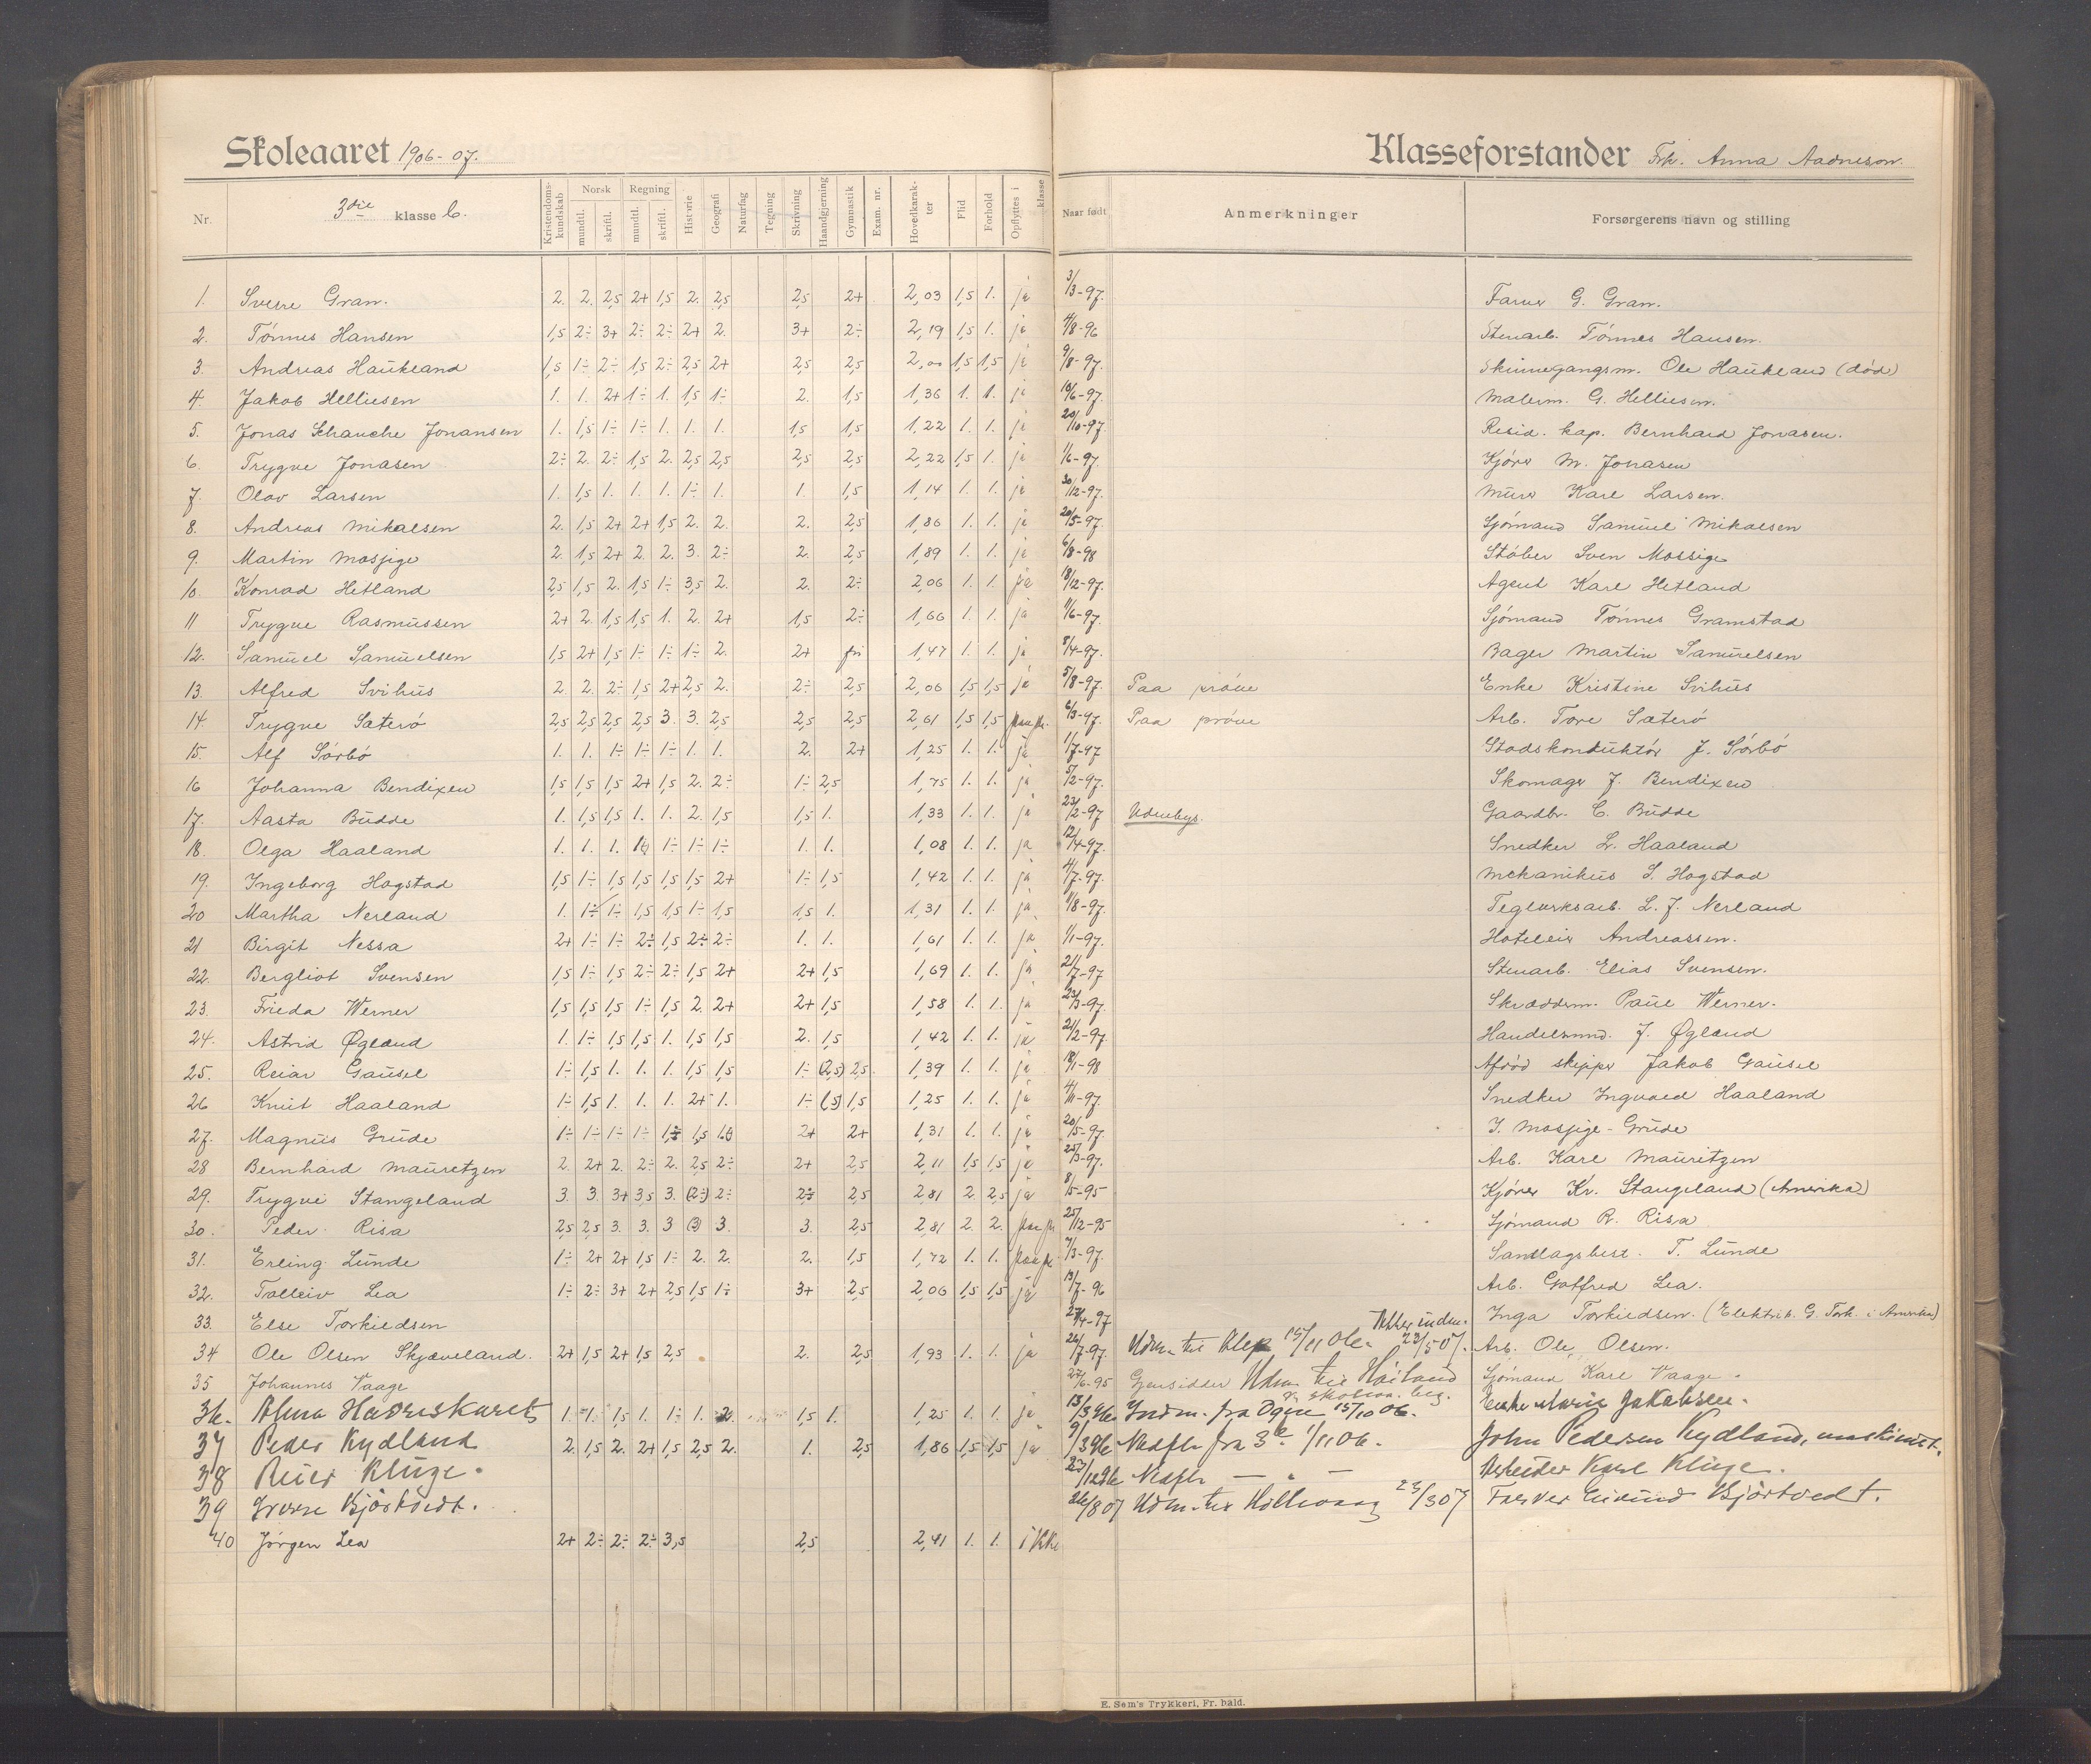 Skoleaaret 1906-07.
Klasseforstander Frk. Anna Aadneson.
Nr. 3die klasse b. Kristendomskundskab Norsk mundtl. skriftl. Regning mundtl. skriftl. Historie Geografi Naturfag Tegning Skrivning Haandgjerning Gymnastik Exam. nr. Hovedkarakter Flid Forhold Opflyttes i klasse Naar født Anmerkninger Forsørgerens navn og stilling
1. Sverre Gran. 2. 2. 2,5 2+ 1,5 2. 2,5 2,5 2+ 2,03 1,5 1. ja 3/3-97. Farver G. Gran.
2. Tönnes Hansen 1,5 2÷ 3+ 2÷ 2÷ 2+ 2. 3+ 2÷ 2,19 1,5 1. ja 4/8-96 Stenarb. Tönnes Hansen.
3. Andreas Haukland 1,5 1÷ 2÷ 1,5 2÷ 2,5 2+ 2,5 2,5 2,00 1,5 1,5 ja 9/8-97. Skinnegangsm. Ole Haukland (död)
4. Jakob Helliesen 1. 1. 2+ 1÷ 1. 1,5 1÷ 2. 1,5 1,36 1. 1. ja 10/6-97. Malerm. G. Helliesen.
5. Jonas Schanche Jonansen 1. 1,5 1÷ 1÷ 1. 1. 1. 1,5 1,5 1,22 1. 1. ja 20/10-97 Resid. kap. Bernhard Jonasen.
6. Trygve Jonasen 2÷ 2. 2÷ 1,5 2. 2,5 2,5 2,5 2,5 2,22 1,5 1. ja 1/6-97. Kjörer M. Jonasen
7. Olav Larsen 1. 1,5 1. 1. 1. 1÷ 1. 1. 1,5 1,14 1. 1. ja 30/12-97. Murer Karl Larsen.
8. Andreas Mikalsen 2. 1,5 2+ 2+ 1,5 2. 2. 2. 2,5 1,86 1. 1. ja 20/5-97. Sjömand Samuel Mikalsen
9. Martin Mosjige 2. 1,5 2+ 2. 2. 3. 2÷ 2. 2,5 1,89 1. 1. ja 6/8-98 Stöber Sven Mossige
10. Konrad Hetland 2,5 1,5 2. 1,5 1÷ 3,5 2. 2. 2÷ 2,06 1. 1. ja 18/12-97. Agent Karl Hetland
11 Trygve Rasmussen 2+ 2. 1,5 1,5 1. 2. 2+ 1,5 2÷ 1,66 1. 1. ja 11/6-97. Sjömand Tönnes Gramstad
12. Samuel Samuelsen 1,5 2+ 1,5 1÷ 1÷ 1÷ 2. 2+ fri 1,47 1. 1. ja 8/4-97. Bager Martin Samuelsen
13. Alfred Svihus 2. 2. 2÷ 1,5 2+ 2,5 2. 2÷ 2,5 2,06 1,5 1,5 ja 5/8-97. Paa pröve Enke Kristine Svihus
14 Trygve Säterö 2,5 2,5 2,5 2,5 3. 3. 2,5 2,5 2,5 2,61 1,5 1,5 paa pr. 6/3-97. Paa pröve Arb. Tore Säterö
15. Alf Sörbö 1. 1. 1÷ 1÷ 1÷ 1. 1. 2. 2+ 1,25 1. 1. ja 1/7-97 Stadskonduktör J. Sörbö
16 Johanna Bendixen 1,5 1,5 1,5 2+ 1,5 2. 2÷ 1÷ 2,5 1,75 1. 1. ja 5/2-97. Skomager J. Bendixen
17. Aasta Budde 1. 1,5 1,5 1. 1. 2. 1,5 1,5 1. 1,33 1. 1. ja 23/2-97 Udenbys. Gaardbr. C. Budde
18. Olga Haaland 1. 1. 1. 1÷ 1÷ 1÷ 1. 1. 1,08 1. 1. ja 12/4-97. Snedker L. Haaland
19. Ingeborg Hogstad 1,5 1÷ 1,5 1,5 1,5 1,5 2+ 1÷ 1,5 1,42 1. 1. ja 4/7-97. Mekanikus S. Hogstad
20 Martha Nerland 1. 1÷ 1÷ 1,5 1,5 1÷ 1,5 1,5 1. 1,31 1. 1. ja 1/8-97. Teglverksarb. L. J. Nerland
21 Birgit Nessa 2+ 1÷ 1÷ 2÷ 1,5 2÷ 2÷ 1. 1. 1,61 1. 1. ja 1/1-97. Hoteleier Andreassen.
22. Bergliot Svensen 1,5 1÷ 1,5 2÷ 2÷ 1,5 2+ 2+ 1,5 1,69 1. 1. ja 21/7-97 Stenarb. Elias Svensen.
23. Frieda Werner 1,5 1,5 1,5 1÷ 1,5 2. 2+ 2+ 1,5 1,58 1. 1. ja 23/3-97. Skrædderm. Paul Werner.
24. Astrid Øglænd 1. 1÷ 1,5 1,5 1. 1,5 1,5 2. 1,5 1,42 1. 1. ja 21/2-97. Handelsmd. J. Øglænd
25. Reiar Gausel 1÷ 1,5 1. 1. 1. 1,5 1,5 1÷ (2,5) 2,5 1,39 1. 1. ja 18/1-98 Afdöd skipper Jakob Gausel
26 Knut Haaland 1÷ 1,5 1. 1. 1. 2+ 1. 1÷ (1,5) 1,5 1,25 1. 1. ja 4/11-97. Snedker Ingvald Haaland
27. Magnus Grude 1÷ 1÷ 1÷ 1÷ 1,5 2+ 2+ 1,31 1. 1. ja 20/5-97. I. Mosjige-Grude
28 Bernhard Mauretzen 2. 2+ 2. 2÷ 2. 2,5 2÷ 2+ 2,5 2,11 1,5 1,5 ja 25/3-97. Arb. Karl Mauritzen
29. Trygve Stangeland 3. 3. 3+ 3,5 3. (2÷) 2÷ 2÷ 2,5 2,81 2. 2,5 ja 8/5-95 Kjörer Kr. Stangeland (Amerika)
30. Peder Risa 2,5 2,5 3. 3. 3 (3) 3. 3. 2,5 2,81 2. 2. paa pr 25/12-95 Sjömand R. Risa
31. Erling Lunde 1÷ 2+ 2+ 1,5 1÷ 2. 2. 2. 1,5 1,72 1. 1. paa pr 7/3-97. Samlagsbest. T. Lunde
32. Tolleiv Lea 1÷ 2÷ 3+ 2+ 2,5 1,5 1÷ 3+ 2,5 2,06 1,5 1,5 ja 19/7-96 Arb. Gotfred Lea.
33. Else Torkildsen 27/4-97 Inga Torkildsen. (Elektrik. G. Tork. i Amerika)
34 Ole Olsen Skjæveland. 2+ 1,5 2+ 1,5 2,5 2. 2,5 1,93 1. 1. ja 26/7-97. Udm. til Klep 15/11 06. Atter indm. 23/5 07. Arb. Ole Olsen.
35 Johannes Vaage 27/6-95 Gjensidder Udm til Höiland Sjömand Karl Vaage.
36. Alma Havreskaret 1. 1. 1,5 1. 1÷ 1. 2. 1,5 1. 1,25 1. 1. ja 13/3 96 Indm. fra Ogna 15/10 06. Enke Marie Jakobsen.
37 Peder Kydland 2. 1,5 2. 2+ 1,5 2,5 2. 1. 2,5 1,86 1,5 1,5 ja 9/3 96 Nedfl. fra 3e 1/11 06. John Pedersen Kydland, maskinist.
38 Reier Kluge. 23/12 96 Nedfl. — " — Arbeider Karl Kluge.
39 Sverre Bjørtvedt. 26/8 07 Udm. til 23/3 07 Farver Eivind Bjørtvedt.
40 Jørgen Lea 2+ 2÷ 2÷ 2÷ 3,5 2,5 2,41 1. 1. ikke
E. Sem's Trykkeri, Fr. hald.